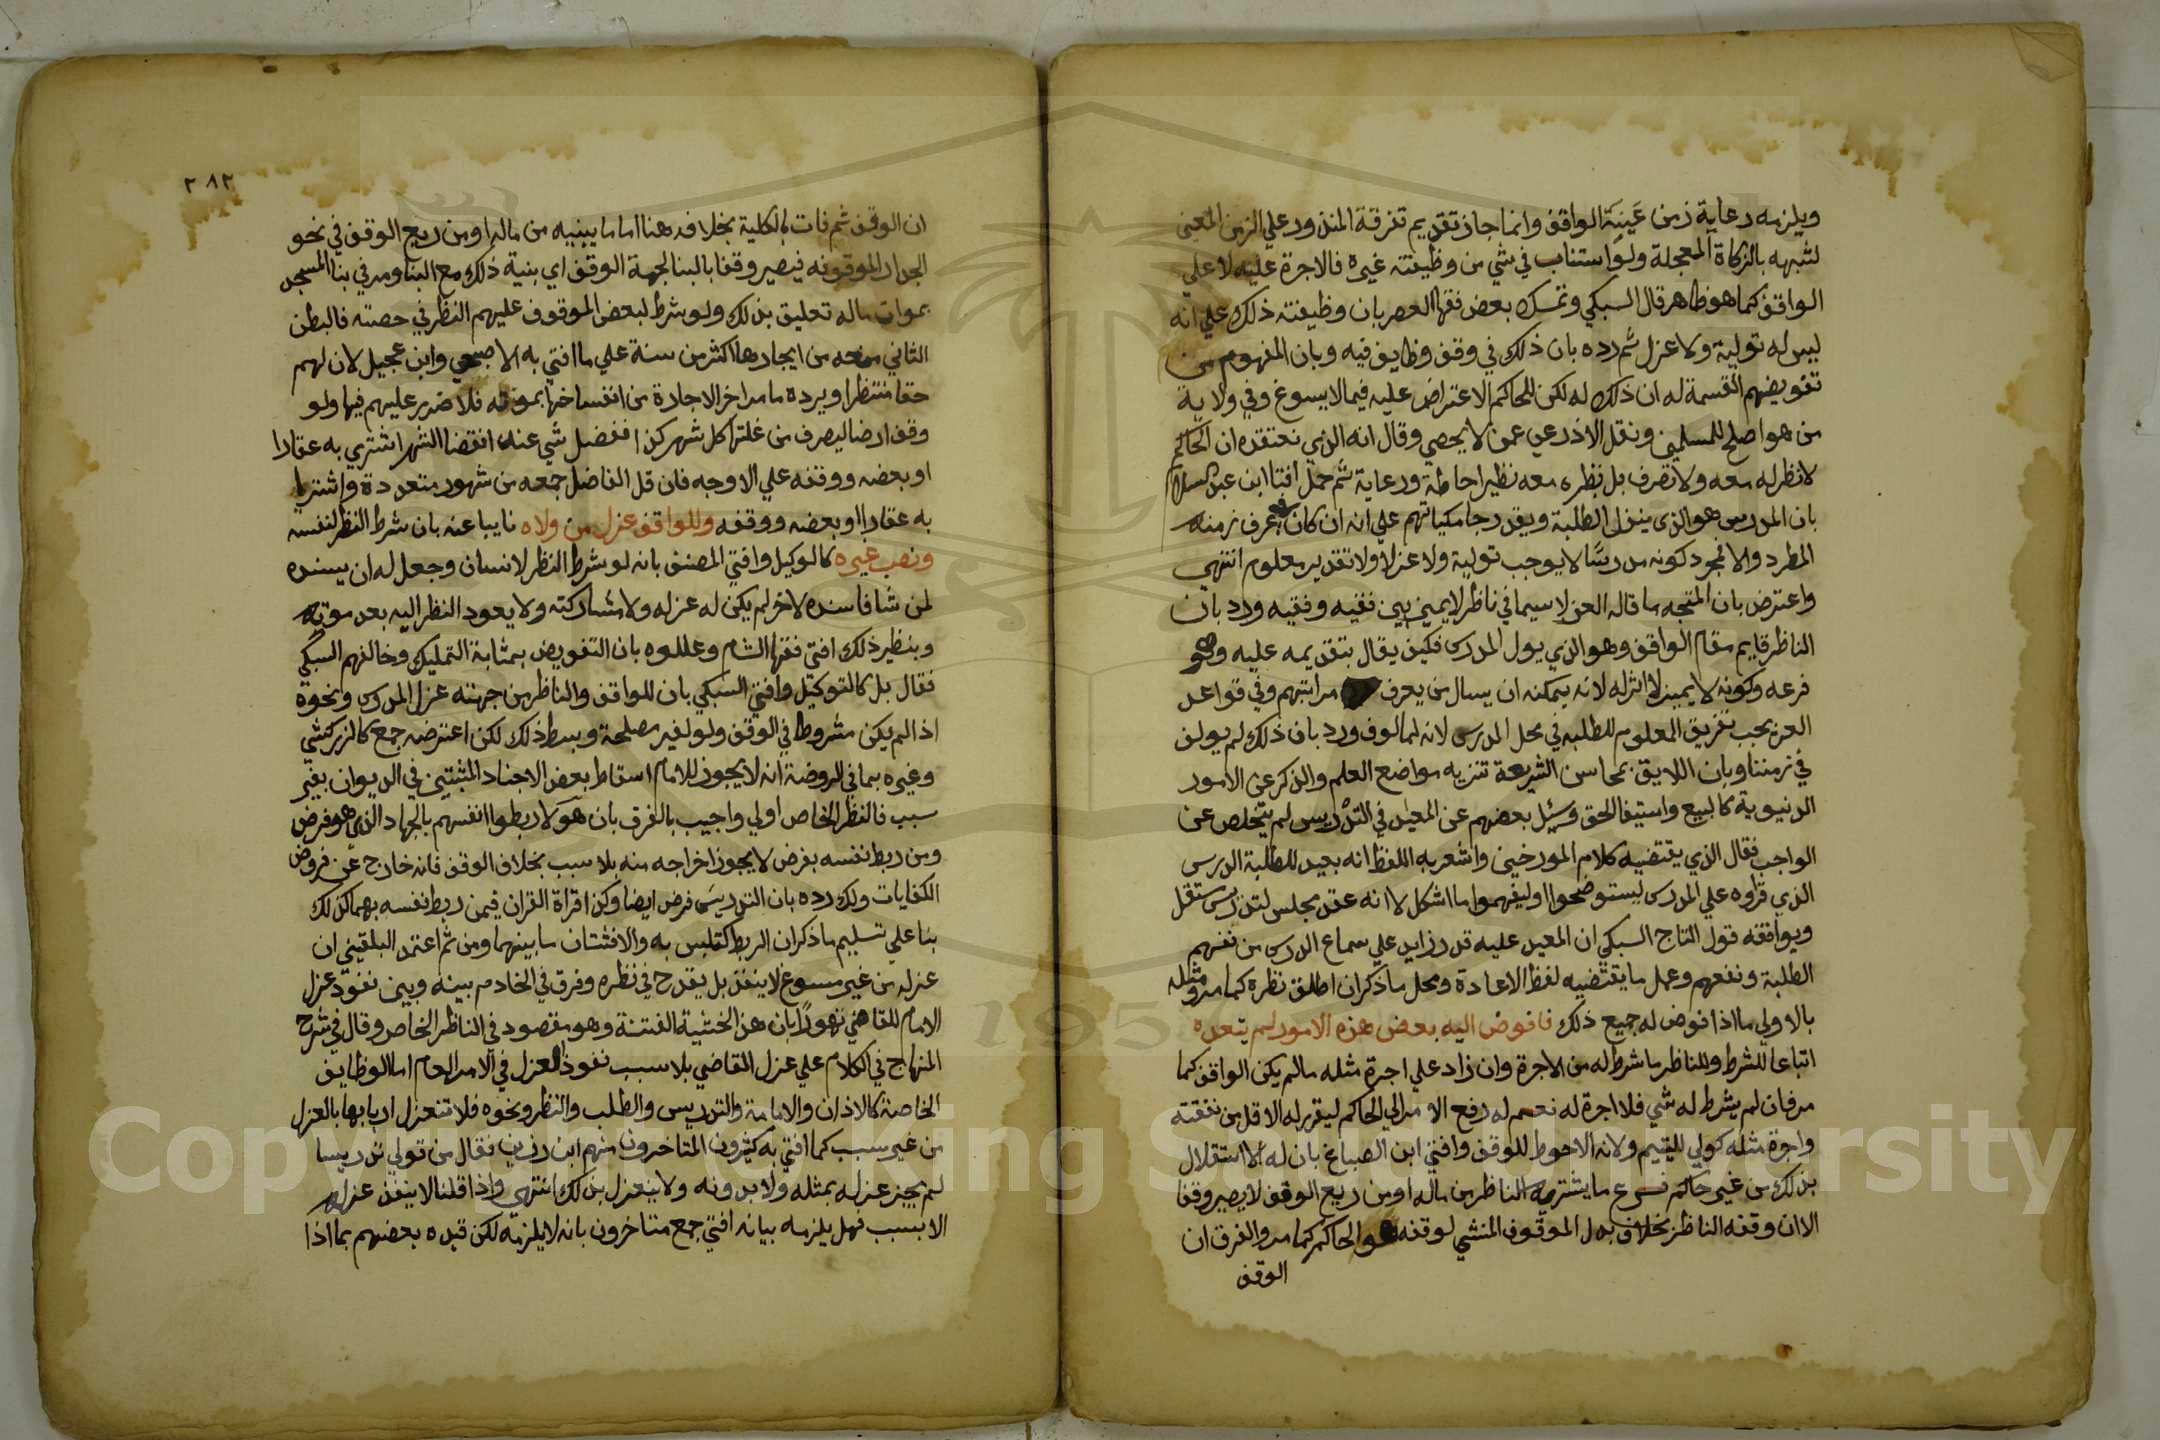 ويلزمه رعاية زمن عينه الواقف وانما جاز تقديم تفرقة المنذور علي الزمن المعين
لشبهه بالزكاة المعجلة ولو استناب في شي من وظيفته غيره فالاجرة عليه لا علي
الواقف كما هو ظاهر قال السبكي وتمسك بعض فقها العصر بان وظيفته ذلك علي انه
ليس له تولية ولا عزل ثم رده بان ذلك في وقف وظايف فيه وبان المفهوم من
تفويضهم القسمة له ان ذلك له لكن للحاكم الاعتراض عليه فيما لا يسوغ وفي ولاية
من هو اصلح للمسلمين ونقل الاذرعي عمن لا يحصي وقال انه الذي نعتقده ان الحاكم
لا نظر له معه ولا تصرف بل نظره معه نظير احاطة ورعاية ثم حمل افتا ابن عبد السلام
بان المدرس هو الذي ينزل الطلبة ويقدر جامكياتهم علي انه ان كان عرف زمنه
المطرد والا فمجرد كونه مدرسا لا يوجب تولية ولا عزلا ولا تقدير معلوم انتهي
واعترض بان المتجه ما قاله العز لا سيما في ناظر لا يميز بين فقيه وفقيه ورد بان
الناظر قايم مقام الواقف وهو الذي يول المدرس فكيف يقال بتقديمه عليه وهو
فرعه وكونه لا يميز لا اثر له لانه يمكنه ان يسال من يعرف مراتبهم وفي قواعد
العز يجب تفريق المعلوم للطلبه في محل المدرس لانه لمالوف ورد بان ذلك لم يولف
في زمننا وبان اللايق بمحاسن الشريعة تنزيه مواضع العلم والذكر عن الامور
الدنيوية كالبيع واستيفا الحق وسئل بعضهم عن المعيد في التدريس لم يتخلص عن
الواجب فقال الذي يقتضيه كلام المورخين واشعر به اللفظ انه يعيد للطلبة الدرس
الذي قراوه علي المدرس ليستوضحوا او ليفهموا ما اشكل لا انه عقد مجلس لتدريس مستقل
ويوافقه قول التاج السبكي ان المعيد عليه قدر زايد علي سماع الدرس من تفهيم
الطلبة ونفعهم وعمل ما يقتضيه لفظ الاعادة ومحل ما ذكر ان اطلق نظره كما مر ومثله
بالاولي ما اذا فوض له جميع ذلك فان فوض اليه بعض هذه الامور لم يتعده
اتباعا للشرط وللناظر ما شرط له من الاجرة وان زاد علي اجرة مثله مالم يكن الواقف كما
مر فان لم يشرط له شي فلا اجرة له نعم له رفع الامر الي الحاكم ليقرر له الاقل من نفقته
واجرة مثله كولي اليتيم ولانه الاحوط للوقف وافتي ابن الصباغ بان له الاستقلال
بذلك من غير حاكم فرع ما يشتريه الناظر من ماله او من ريع الوقف لا يصير وقفا
الا ان وقفه الناظر بخلاف بدل الموقوف المنشي لوقفه هو الحاكم كما مر والفرق ان
الوقف
٢٨٢
ان الوقف ثم فات بالكلية بخلافه هنا اما ما يبنيه من ماله او من ريع الوقف في نحو
الجدار الموقوفه فيصير وقفا بالبنا لجهة الوقف اي بنية ذلك مع البنا ومر في بنا المسجد
بموات ماله تعليق بذلك ولو شرط لبعض الموقوف عليهم النظر في حصته فالبطن
الثاني منعه من ايجارها اكثر من سنة علي ما افتي به الاصبحي وابن عجيل لان لهم
حقا منتظرا ويرده ما مر اخر الاجارة من انفساخها بموته فلا ضرر عليهم فيها ولو
وقف ارضا ليصرف من غلتها كل شهر كذا ففضل شي عند انقضا الشهر اشتري به عقارا
او بعضه ووقفه علي الاوجه فان قل الفاضل جمعه من شهور متعددة واشتري
به عقارا او بعضه ووقفه وللواقف عزل من ولاه نايبا عنه بان شرط النظر لنفسه
ونصب غيره كالوكيل وافتي المصنف بانه لو شرط النظر لانسان وجعل له ان يسنده
لمن شا فاسنده لاخر لم يكن له عزله ولا مشاركته ولا يعود النظر اليه بعد موته
وبنظير ذلك افتي فقها الشام وعللوه بان التفويض بمثابة التمليك وخالفهم السبكي
فقال بل كالتوكيل وافتي السبكي بان للواقف والناظر من جهته عزل المدرس ونحوه
اذا لم يكن مشروطا في الوقف ولو لغير مصلحة وبسط ذلك لكن اعترضه جمع كالزركشي
وغيره بما في الروضة انه لا يجوز للامام اسقاط بعض الاجناد المثبتين في الديوان بغير
سبب فالنظر الخاص اولي واجيب بالفرق بان هولا ربطوا انفسهم بالجهاد الذي هو فرض
ومن ربط نفسه بفرض لا يجوز اخراجه منه بلا سبب بخلاف الوقف فانه خارج عن فروض
الكفايات ولك رده بان التدريس فرض ايضا وكذا قراة القران فيمن ربط نفسه بهما كذلك
بنا علي تسليم ما ذكر ان الربط كتلبس به والا فشتان ما بينهما ومن ثم اعتمد البلقيني ان
عزله من غير مسوغ لا ينفذ بل يقدح في نظره وفرق في الخادم بينه وبين نفوذ عزل
الامام للقاضي تهورا بان هذا لخشية الفتنة وهو مقصود في الناظر الخاص وقال في شرح
المنهاج في الكلام علي عزل القاضي بلا سبب نفوذ العزل في الامر العام اما الوظايف
الخاصة كالاذان والامامة والتدريس والطلب والنظر ونحوه فلا تنعزل اربابها بالعزل
من غير سبب كما افتي به كثيرون المتاخرون منهم ابن رزين فقال من تولي تدريسا
لم يجز عزله بمثله ولا بدونه ولا ينعزل بذلك انتهي واذا قلنا لا ينفذ عزله
الا بسبب فهل يلزمه بيانه افتي جمع متاخرون بانه لا يلزمه لكن قيده بعضهم بما اذا